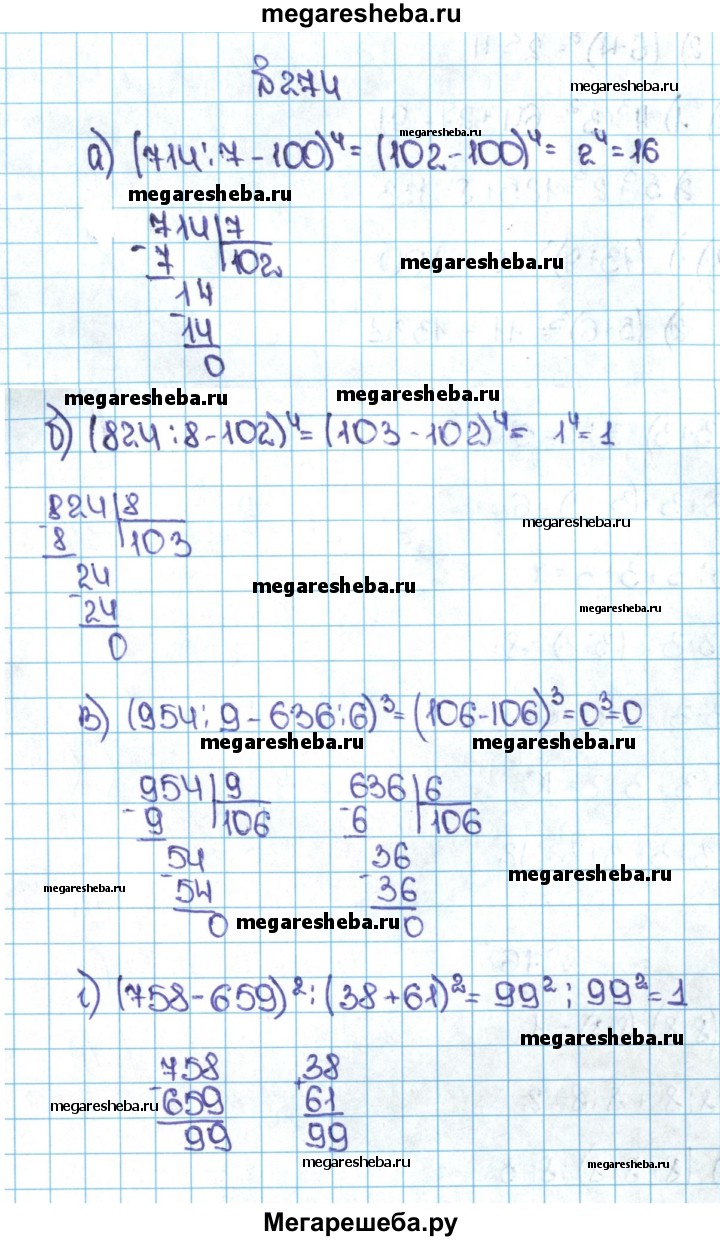 megaresheba.ru
№274
megaresheba.ru
megaresheba.ru
а) (714:7-100)⁴= (102-100)⁴= 2⁴=16
megaresheba.ru
714 7
-7 102
megaresheba.ru
14
-14
0
megaresheba.ru
megaresheba.ru
б) (824:8-102)⁴=(103-102)⁴= 1⁴=1
824 8
megaresheba.ru
-8 103
24
megaresheba.ru
-24
megaresheba.ru
0
в) (954:9-636:6)³=(106-106)³=0³=0
megaresheba.ru megaresheba.ru
954 9 636 6
-9 106 -6 106
54 36
megaresheba.ru
-54 -36
megaresheba.ru
0 0
megaresheba.ru
г) (758-659)²:(38+61)²= 99²:99²=1
megaresheba.ru
758 38
-659 +61
megaresheba.ru
99 99
megaresheba.ru
megaresheba.ru
Мегарешеба.ру